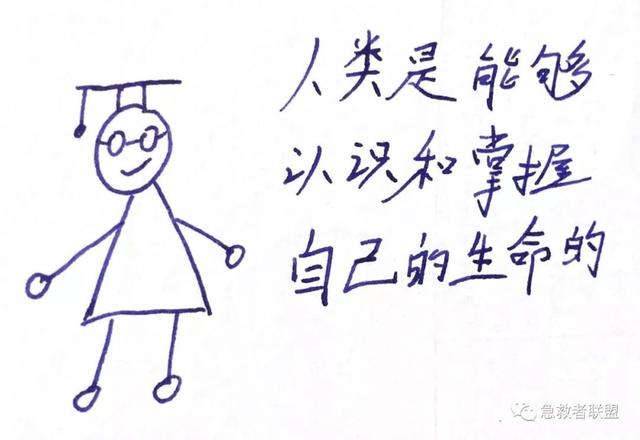 人类是能够
认识和掌握
自己的生命的
急救者联盟